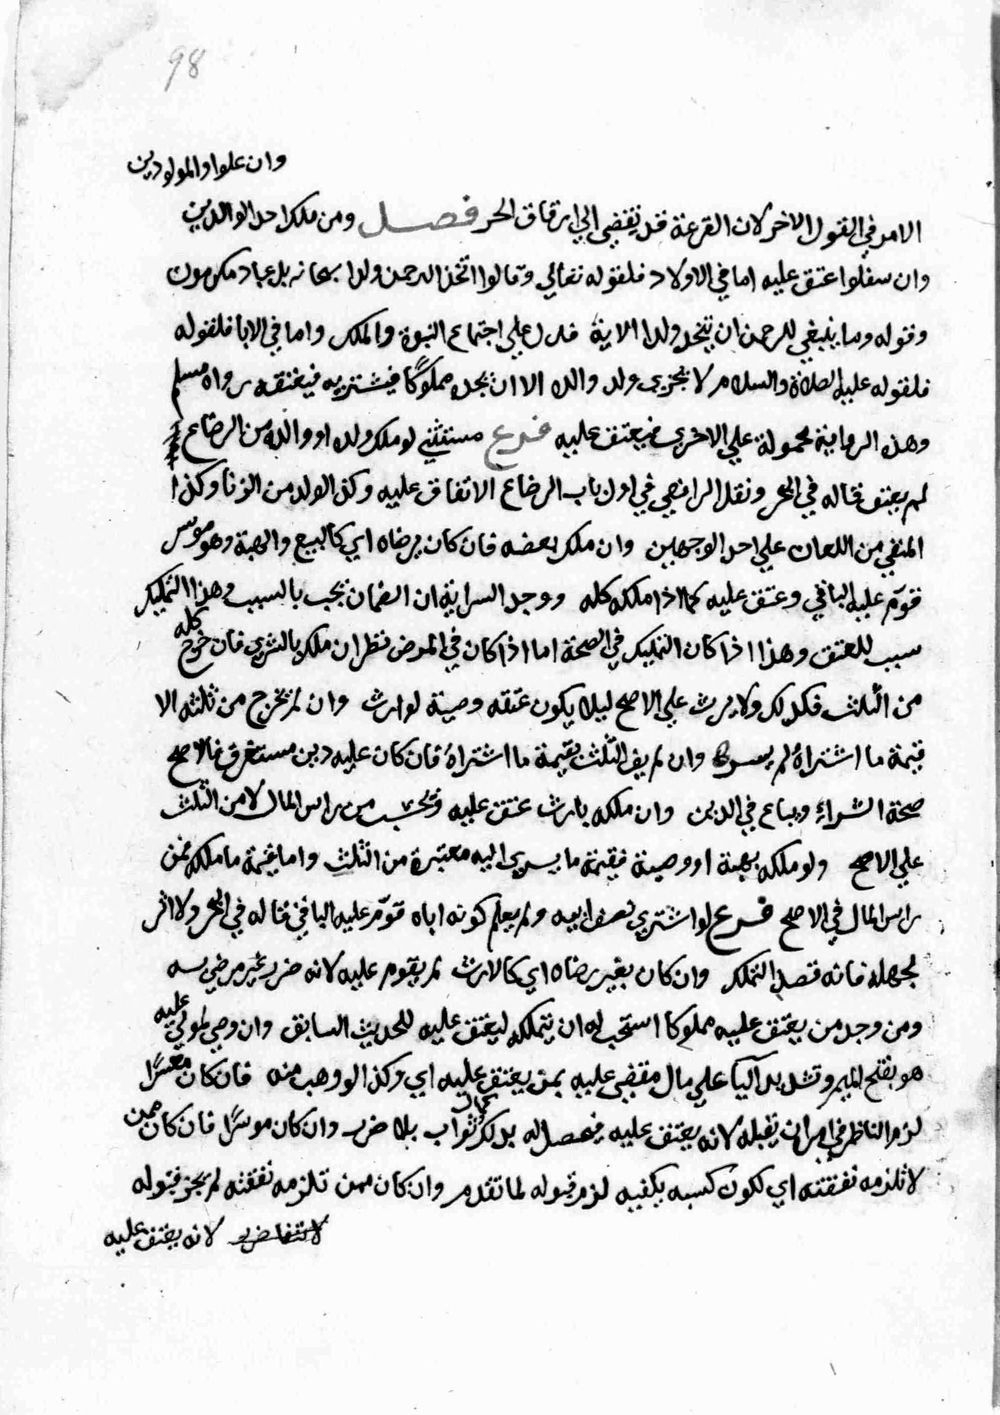 98
وان علوا والمولودين
الامر في القول الاخر لان القرعة قد تفضي الي ارقاق الحر فصل ومن ملك احد الوالدين
وان سفلوا عتق عليه اما في الاولاد فلقوله تعالي وقالوا اتخذ الرحمن ولدا سبحانه بل عباد مكرمون
وقوله وما ينبغي للرحمن ان يتخذ ولدا الاية فدل علي اجتماع البنوة والملك واما في الابا فلقوله
فلقوله عليه الصلاة والسلام لا يجزي ولد والده الا ان يجده مملوكًا فيشتريه فيعتقه رواه مسلم
وهذه الرواية محمولة علي الاخري فيعتق عليه فرع مستثني لو ملك ولده او والده من الرضاع
لم يعتق قاله في البحر ونقل الرافعي في اول باب الرضاع الاتفاق عليه وكذا الولد من الزنا وكذا
المنفي من اللعان علي احد الوجهين وان ملك بعضه فان كان برضاه اي كالبيع والهبة وهو موسر
قوّم عليه الباقي وعتق عليه كما اذا ملكه كله ووجه السراية ان الضمان يجب بالسبب وهذا التمليك
سبب للعتق وهذا اذا كان التمليك في الصحة اما اذا كان في المرض نظر ان ملك بالشري فان خرج كله
من الثلث فكذلك ولا يرث علي الاصح ليلا يكون عتقه وصية لوارث وان لم يخرج من ثلثه الا
قيمة ما اشتراه لم يسر وان لم يف الثلث بقيمة ما اشتراه فان كان عليه دين مستغرق فالاصح
صحة الشراء ويباع في الدين وان ملكه بارث عتق عليه ويحسب من راس المال لا من الثلث
علي الاصح ولو ملكه بهبة او وصية فقيمة ما يسري اليه معتبرة من الثلث واما قيمة ما ملكه فمن
راس المال في الاصح فرع لو اشتري نصف ابيه ولم يعلم كونه اباه قوّم عليه الباقي قاله في البحر ولا اثر
لجهله فانه قصد التملك وان كان بغير رضاه اي كالارث لم يقوم عليه لانه ضرر غير مرضي به
ومن وجد من يعتق عليه مملوكا استحب له ان يتملكه ليعتق عليه للحديث السابق وان وصي لمولي عليه
هو بفتح الميم وتشديد اليا علي مال مقضي عليه بمن يعتق عليه اي وكذا لو وهب منه فان كان معسرًا
لزم الناظر في امره ان يقبله لانه يعتق عليه فيحصل له بذلك ثواب بلا ضرر وان كان موسرًا فان كان ممن
لا تلزمه نفقته اي لكون كسبه يكفيه لزم قبوله لما تقدم وان كان ممن تلزمه نفقته لم يجز قبوله
لانه يعتق عليه